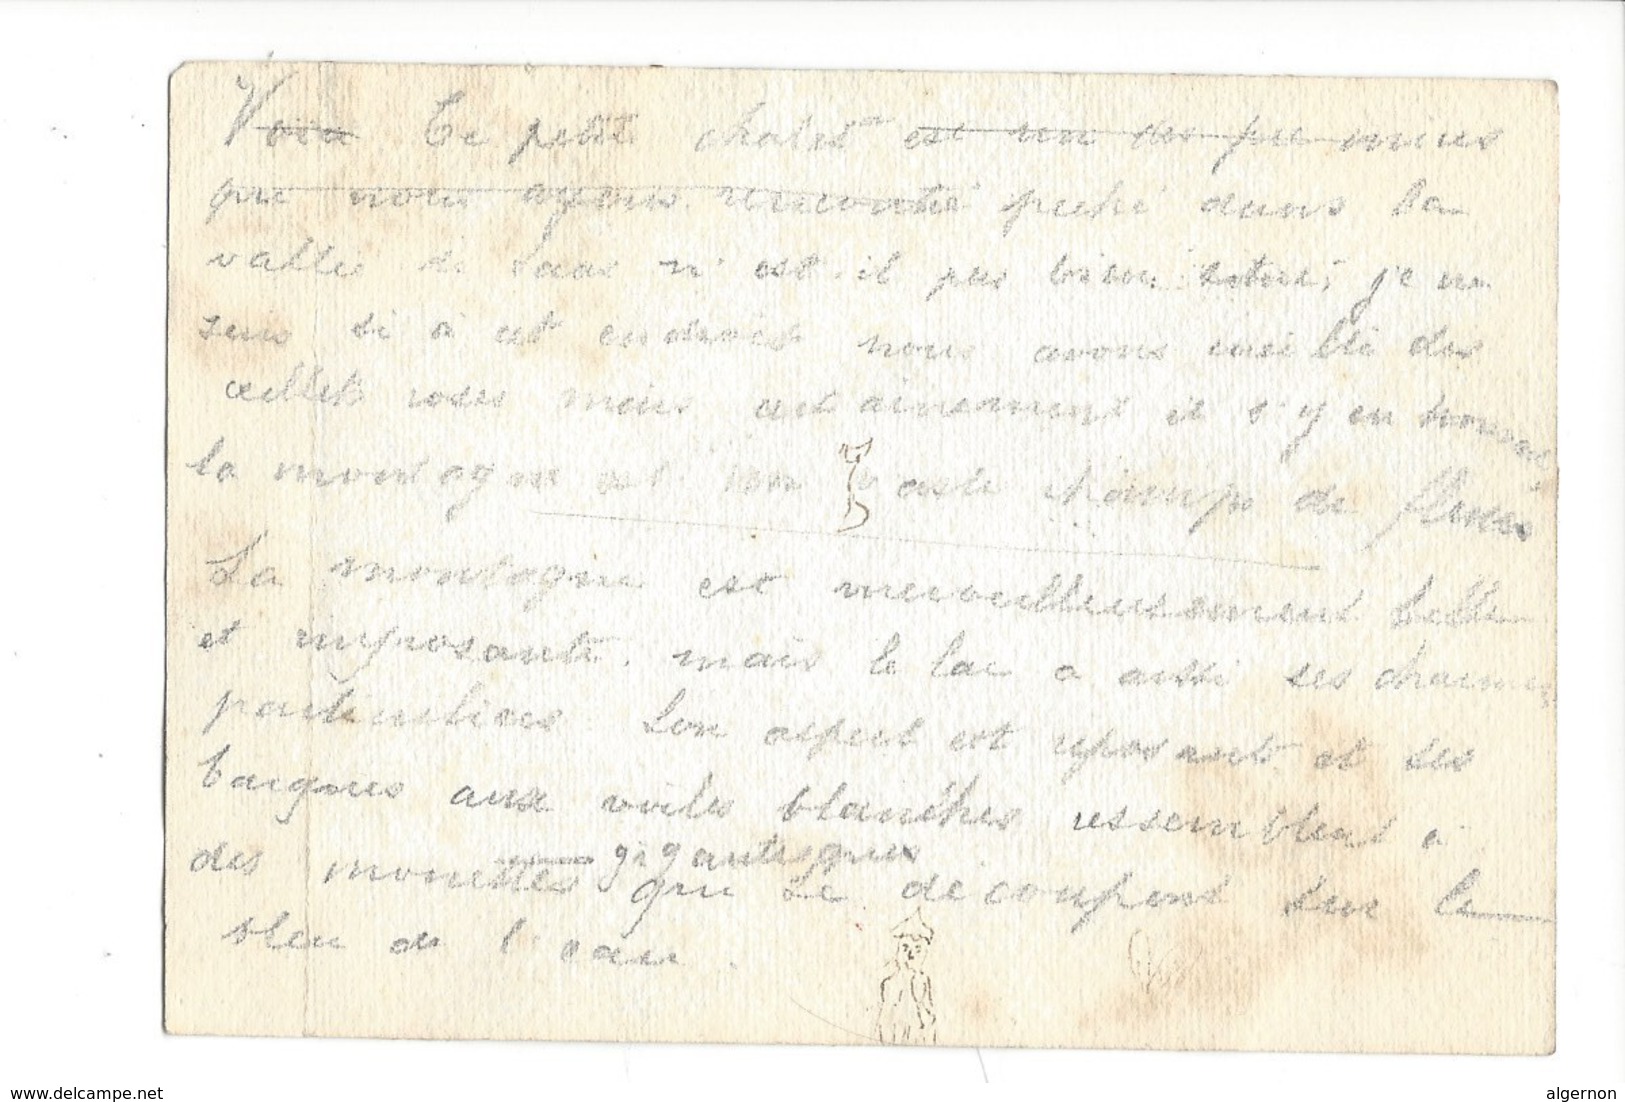 Voia Ce petit chalet est un des premiers
que nous ayons rencontré perché dans la
vallée de Saas n'est-il pas bien situé, je ne
sais si à cet endroit nous avons cueilli des
œillets roses mais certainement il s'y en trouve
la montagne est un vaste champs de fleurs
La montagne est merveilleusement belle
et imposante. mais le lac a aussi ses charmes
particuliers Son aspect est reposant et ses
barques aux voiles blanches ressemblent à
des mouettes gigantesques que se découpent sur le
bleu de l'eau.
www.delcampe.net
algernon